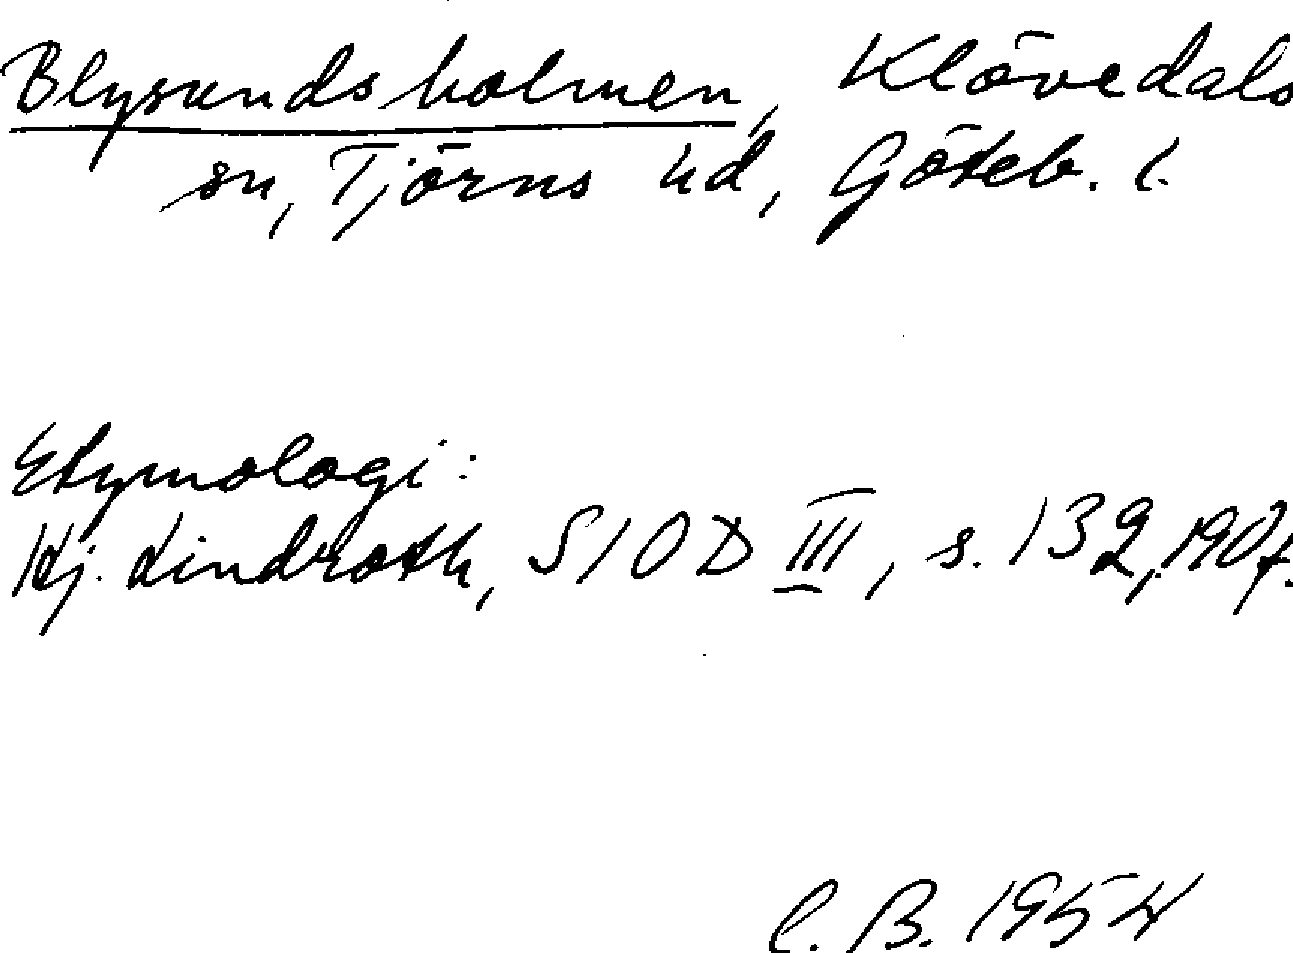 Blysundsholmen, Klövedals
sn, Tjörns hd, Göteb. l.
Etymologi:
Hj. Lindroth, SIOD III, s. 132, 190f.
C. B. 1954